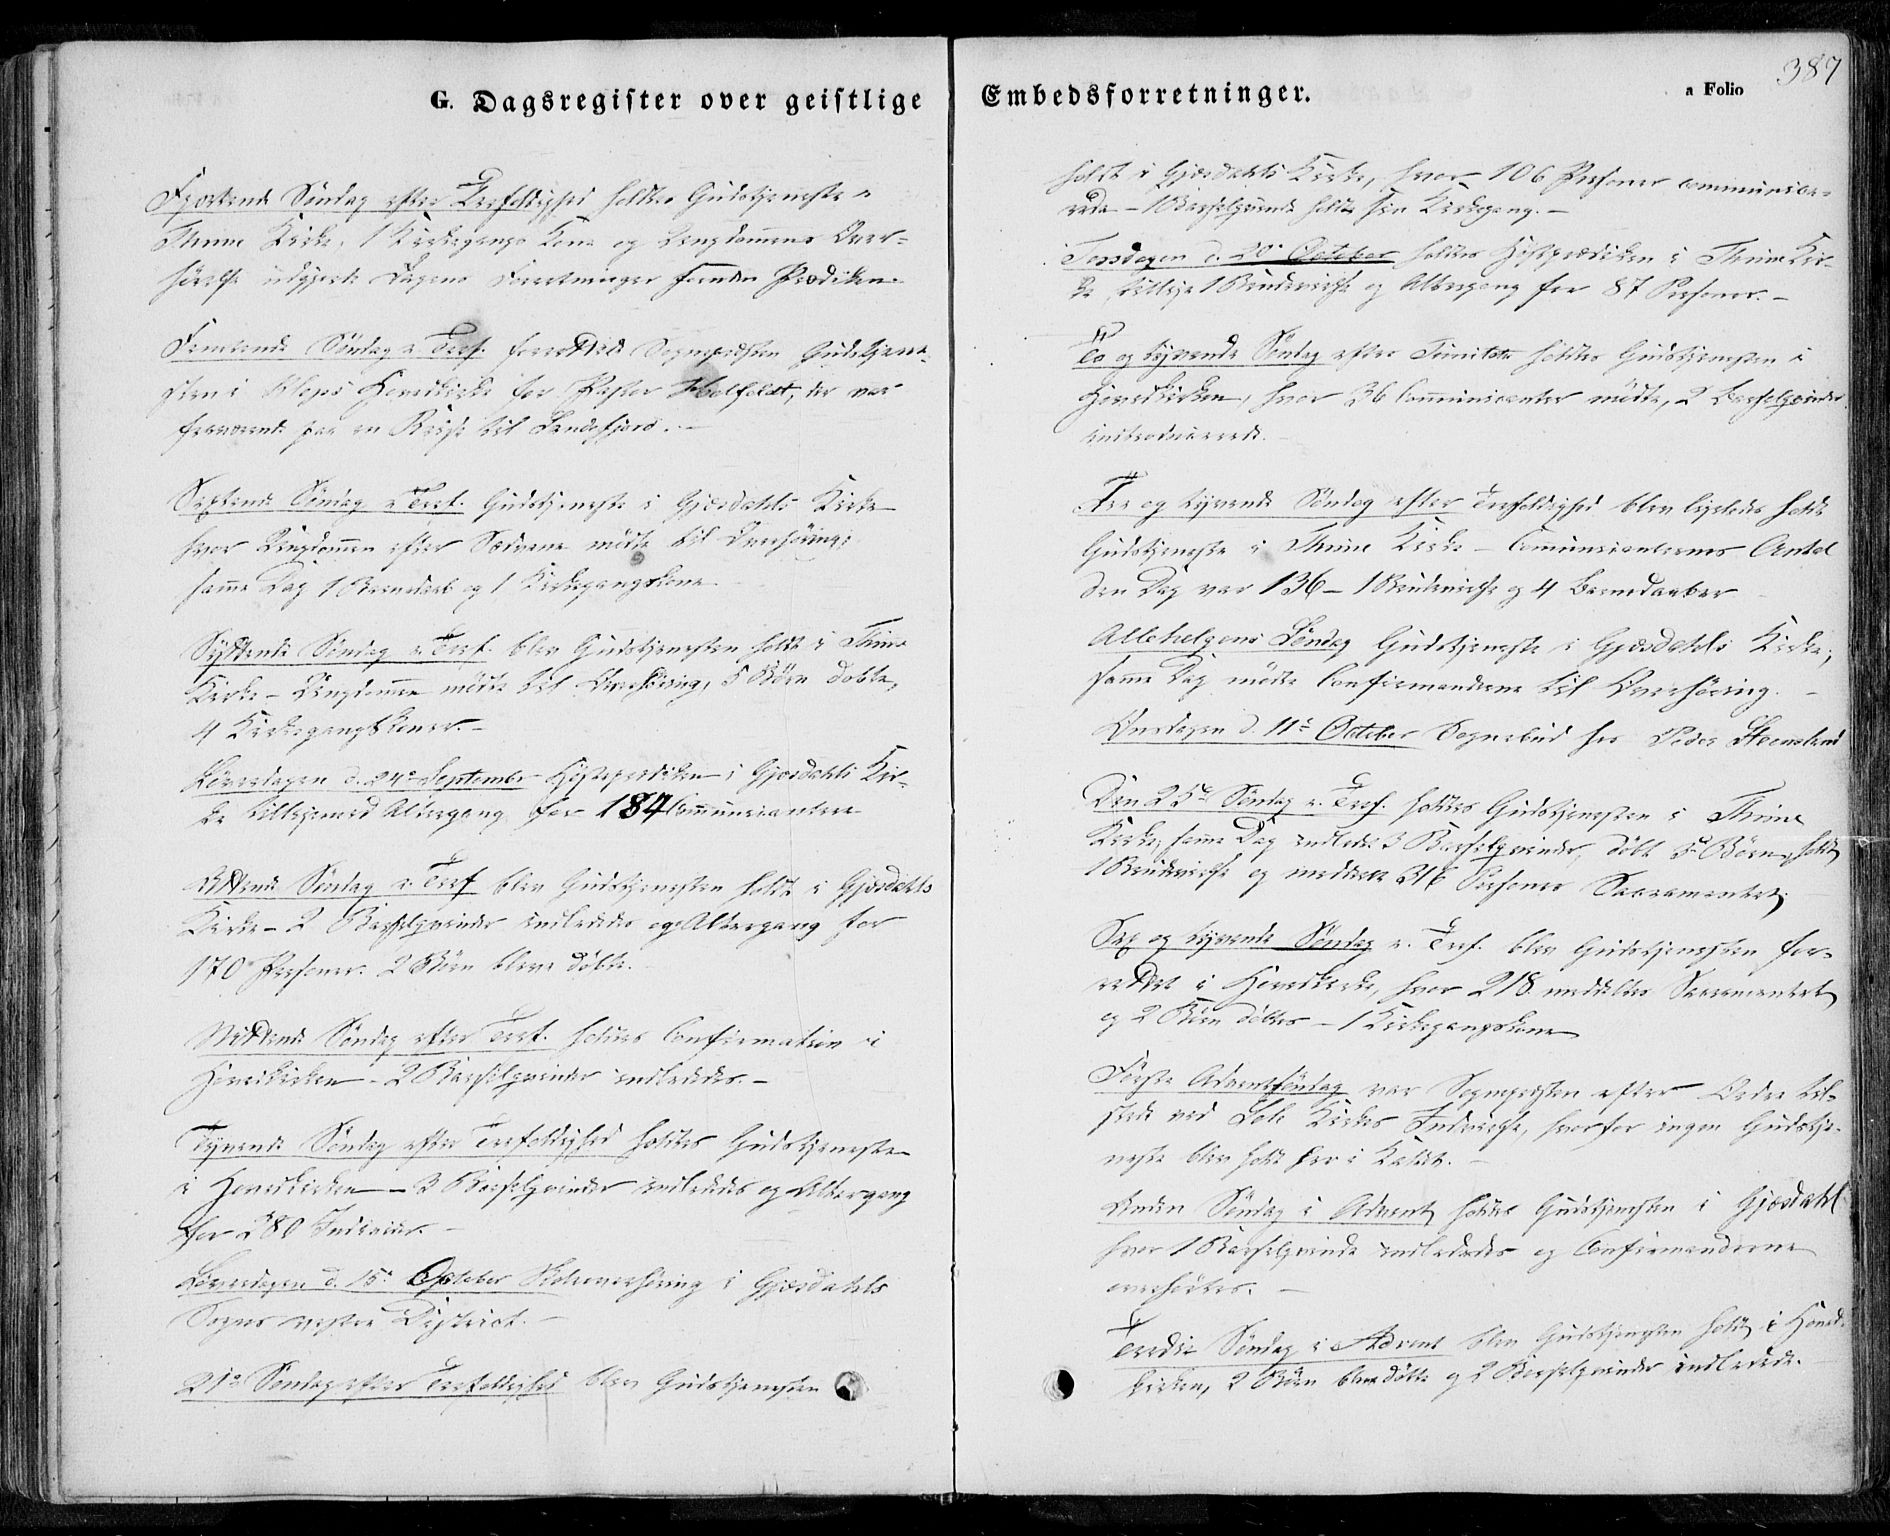 G. Dagsregister over geistlige
Fjortende Søndag efter Trefoldighed holdtes Gudstjeneste i
Thime Kirke. 1 Kirkegangs Kone og Ungdommens Over-
hørelse udgjorde Dagens Forretninger foruden Prædiken
Femtende Søndag e. Tref. forrettede Sognepresten Gudstjene-
sten i Kleps Hovedkirke for Pastor, der var
fraværende paa en Reise til Sandefjord.
Sextende Søndag e. Tref. Gudstjeneste i Gjæsdahls Kirke
hvor Ungdommen efter Sædvane mødte til Overhøring;
samme Dag 1 Barnedaab og 1 Kirkegangskone
Syttende Søndag e. Tref. blev Gudstjenesten holdt i Thime
Kirke – Ungdommen mødte til Overhøring, 5 Børn døbte,
4 Kirkegangskoner. –
Løverdagen d. 24de September Høstprædiken i Gjæsdahls Kir-
ke tilligemed Altergang for 184 Communicantere
Attende Søndag e. Tref. blev Gudstjenesten holdt i Gjæsdahls
Kirke – 2 Barselqvinder indlededes og Altergang for
170 Personer. 2 Børn bleve døbte.
Nittende Søndag efter Tref. holdtes Confirmation i
Hovedkirken – 2 Barselqvinder indlededes. –
Tyvende Søndag efter Trefoldighed holdtes Gudstjeneste
i Hovedkirken – 3 Barselqvinder indlededes og Altergang
for 280 Individer. –
Løverdagen d. 15de October Skoleoverhøring i Gjæsdahls
Sogns vestre District. –
21de Søndag efter Trefoldighed blev Gudstjenesten
Embedsforretninger.
a Folio
387
holdt i Gjæsdahls Kirke, hvor 106 Personer communice-
rede – 1 Barselqvinde holdt sin Kirkegang. –
Torsdagen d. 20de October holdtes Høstprædiken i Thime Kir-
ke, tillige 1 Brudevielse og Altergang for 87 Personer. –
To og tyvende Søndag efter Trinitatis holdtes Gudstjenesten i
Hovedkirken, hvor 36 Communicanter mødte, 2 Barselqvinder
introducerede.
Tre og tyvende Søndag efter Trefoldighed blev ligeledes holdt
Gudstjeneste i Thime Kirke – Communicanternes Antal
den Dag var 136 – 1 Brudevielse og 4 Barnedaaber
Allehelgens Søndag Gudstjeneste i Gjæsdahls Kirke;
samme Dag mødte Confirmanderne til Overhøring. –
Onsdagen d. 11te October Sognebud hos Peder
Den 25de Søndag e. Tref. holdtes Gudstjenesten i Thime
Kirke; samme Dag indledet 3 Barselqvinder, døbt 5 Børn, holdt
1 Brudevielse og meddeelt 216 Personer Sacramentet;
Sex og tyvende Søndag e. Tref. blev Gudstjenesten for-
rettet i Hovedkirke, hvor 218 meddeltes Sacramentet
og 2 Børn døbtes – 1 Kirkegangskone
Første Adventsøndag var Sognepresten efter Ordre til-
stede ved Sole Kirkes Indvielse, hvorfor ingen Gudstje-
neste blev holdt her i Kaldet. –
Anden Søndag i Advent holdtes Gudstjenesten i Gjæsdahl
hvor 1 Barselqvinde indlededes og Confirmanderne
overhørtes. –
Tredie Søndag i Advent blev Gudstjenesten holdt i Hoved-
kirken, 2 Børn bleve døbte og 2 Barselqvinder indledede.